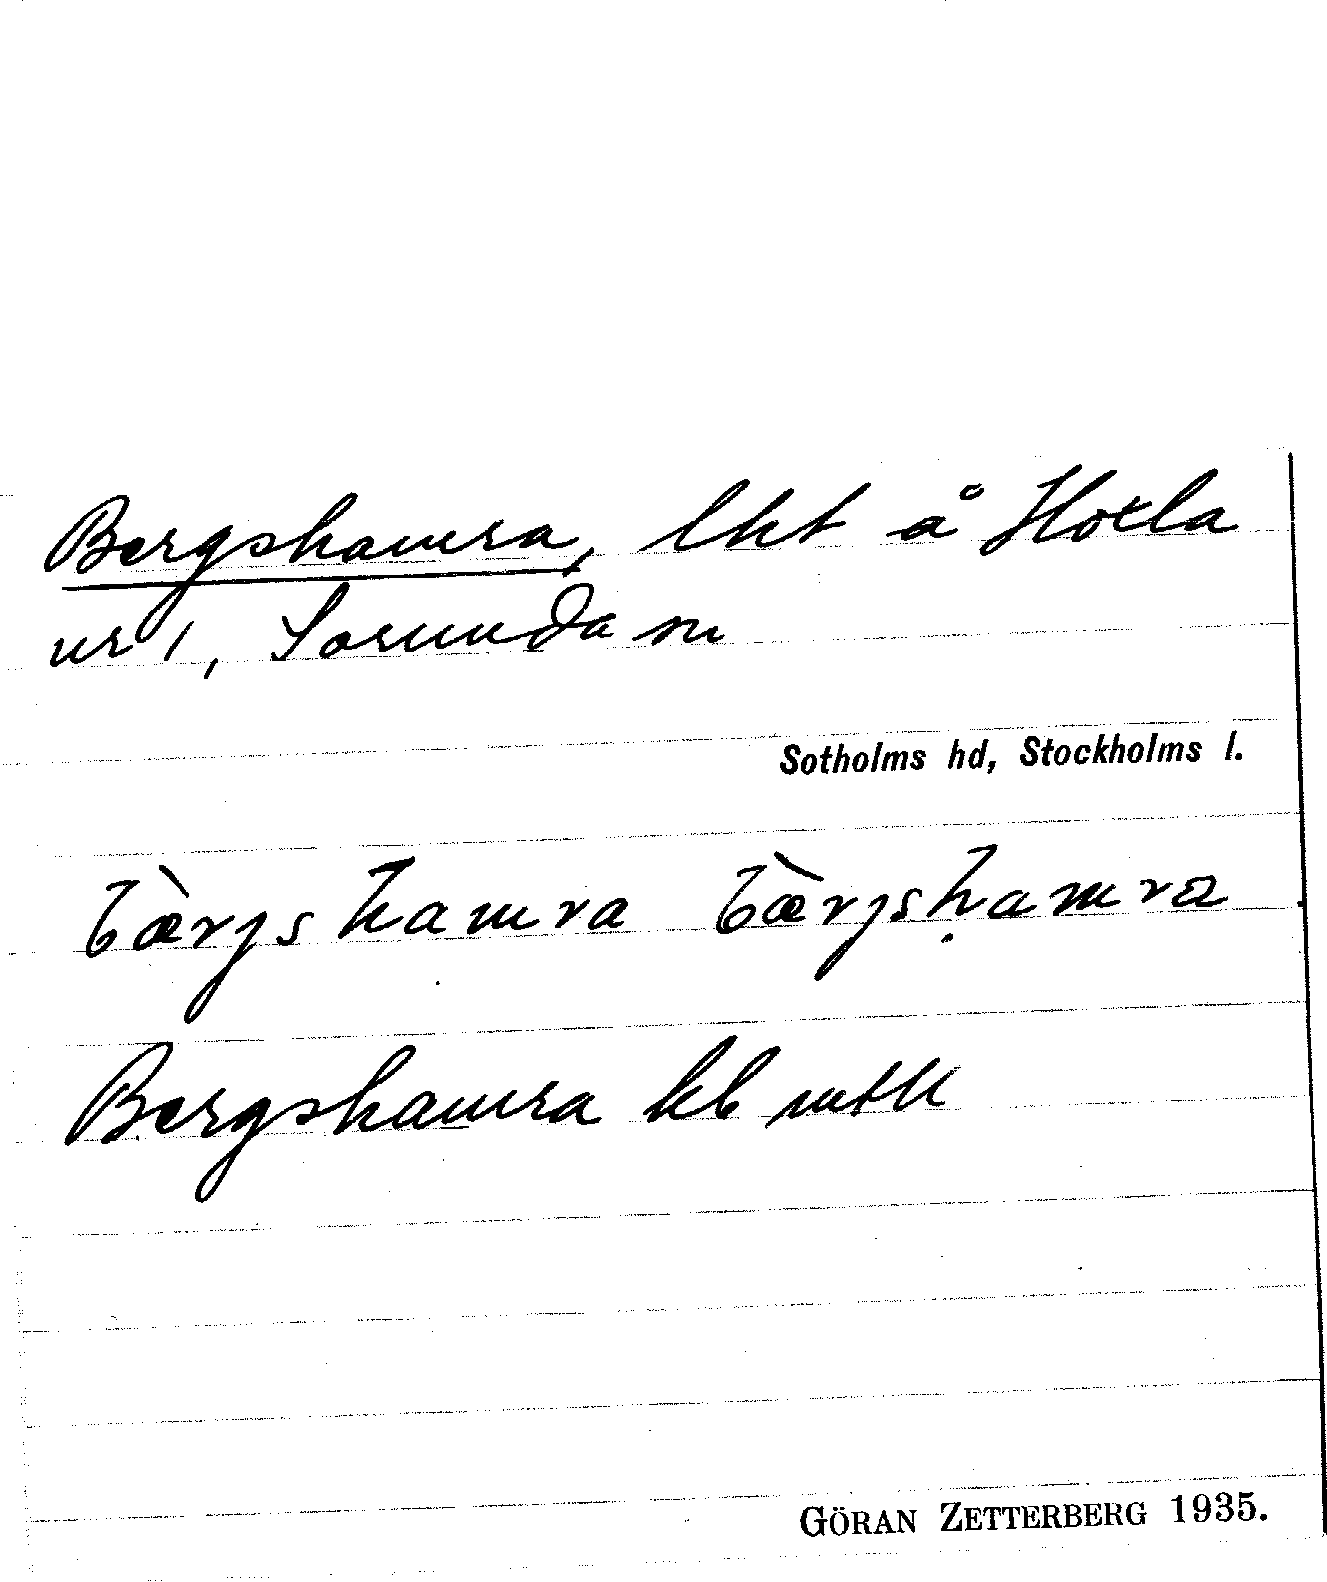 Bergshamra, lht å Hoxla
nr 1, Sorunda sn
Sotholms hd, Stockholms l.
bæ̀rjshamra bæ̀rjsḥamra
Bergshamra kb
GÖRAN ZETTERBERG 1935.